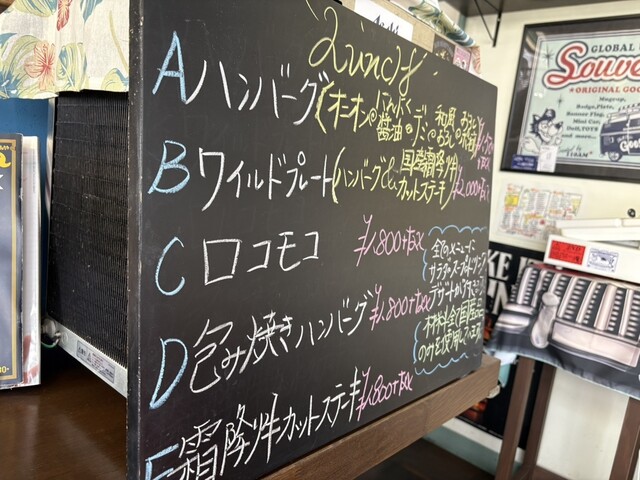 Lunch
A ハンバーグ(オニオンorにんにく醤油orデミor和風おろしor
B ワイルドプレート(ハンバーグ&国産霜降り牛カットステーキ) ¥2,000+tax
C ロコモコ ¥1,800+tax
D 包み焼きハンバーグ ¥1,800+tax
E 霜降り牛カットステーキ ¥1,800+tax
全てのメニューに
サラダ・スープ・ドリンク
デザートが
材料は全て国産
のみを使用してます
GLOBAL
Souve
★ORIGINAL GOO
Mugcup,
and more...